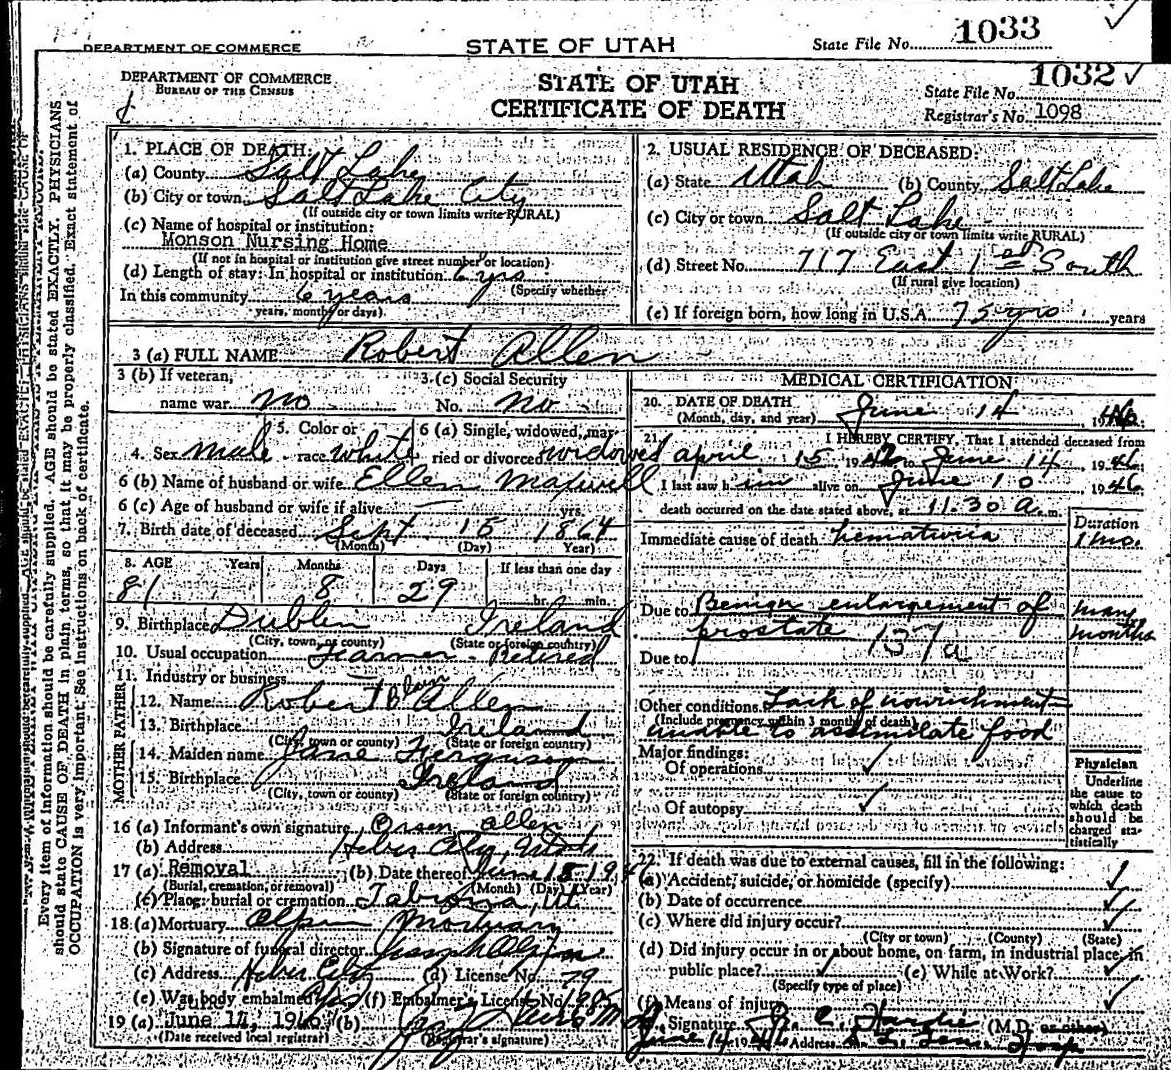 DEPARTMENT OF COMMERCE STATE OF UTAH State File No. 1033
DEPARTMENT OF COMMERCE
BUREAU OF THE CENSUS
STATE OF UTAH
CERTIFICATE OF DEATH
State File No. 1032
Registrar's No. 1098
Every item of information should be carefully supplied. AGE should be stated EXACTLY. PHYSICIANS
should state CAUSE OF DEATH in plain terms, so that it may be properly classified. Exact statement of
OCCUPATION is very important. See instructions on back of certificate.
1. PLACE OF DEATH:
(a) County Salt Lake
(b) City or town Salt Lake City
(If outside city or town limits write RURAL)
(c) Name of hospital or institution:
Monson Nursing Home
(If not in hospital or institution give street number or location)
(d) Length of stay: In hospital or institution 6 yrs
(Specify whether
In this community 6 years
years, months or days)
2. USUAL RESIDENCE OF DECEASED:
(a) State Utah (b) County Salt Lake
(c) City or town Salt Lake
(If outside city or town limits write RURAL)
(d) Street No. 717 East 1st South
(If rural give location)
(e) If foreign born, how long in U.S.A. 75 yrs years
3 (a) FULL NAME Robert Allen
3 (b) If veteran, 3. (c) Social Security
name war no No. no
5. Color or 6 (a) Single, widowed, mar-
4. Sex male race white ried or divorced widowed
6 (b) Name of husband or wife Ellen Maxwell
6 (c) Age of husband or wife if alive yrs.
7. Birth date of deceased Sept 15 1864
(Month) (Day) (Year)
8. AGE Years Months Days If less than one day
81 8 29 hr. min.
9. Birthplace Dublin Ireland
(City, town, or county) (State or foreign country)
10. Usual occupation Farmer - Retired
11. Industry or business
FATHER
12. Name Robert Allen
13. Birthplace Ireland
(City, town or county) (State or foreign country)
MOTHER
14. Maiden name Jane Ferguson
15. Birthplace Ireland
(City, town or county) (State or foreign country)
16 (a) Informant's own signature Orson Allen
(b) Address Heber City, Utah
17 (a) Removal (b) Date thereof June 15 194
(Burial, cremation, or removal) (Month) (Day) (Year)
(c) Place: burial or cremation Tabiona, Ut.
18 (a) Mortuary Olpin Mortuary
(b) Signature of funeral director
(c) Address Heber City (d) License No. 79
(e) Was body embalmed? Yes (f) Embalmer's License No.
19 (a) June 14, 1946 (b)
(Date received local registrar) (Registrar's signature)
MEDICAL CERTIFICATION
20. DATE OF DEATH
(Month, day, and year) June 14 1946
21. I HEREBY CERTIFY, That I attended deceased from
april 15 1942 to June 14 1946
I last saw him alive on June 10 1946
death occurred on the date stated above, at 11:30 a. m.
Duration
Immediate cause of death hematuria 1 mo.
Due to Benign enlargement of many
prostate 137a months
Due to
Other conditions Lack of nourishment
(Include pregnancy within 3 months of death)
unable to assimilate food
Major findings:
Of operations
Of autopsy
Physician
Underline
the cause to
which death
should be
charged sta-
tistically
22. If death was due to external causes, fill in the following:
(a) Accident, suicide, or homicide (specify)
(b) Date of occurrence
(c) Where did injury occur?
(City or town) (County) (State)
(d) Did injury occur in or about home, on farm, in industrial place, in
public place? (e) While at Work?
(Specify type of place)
(f) Means of injury
Signature C. Hardie (M.D. or other)
June 14 1946 Address S. L. Gen. Hosp